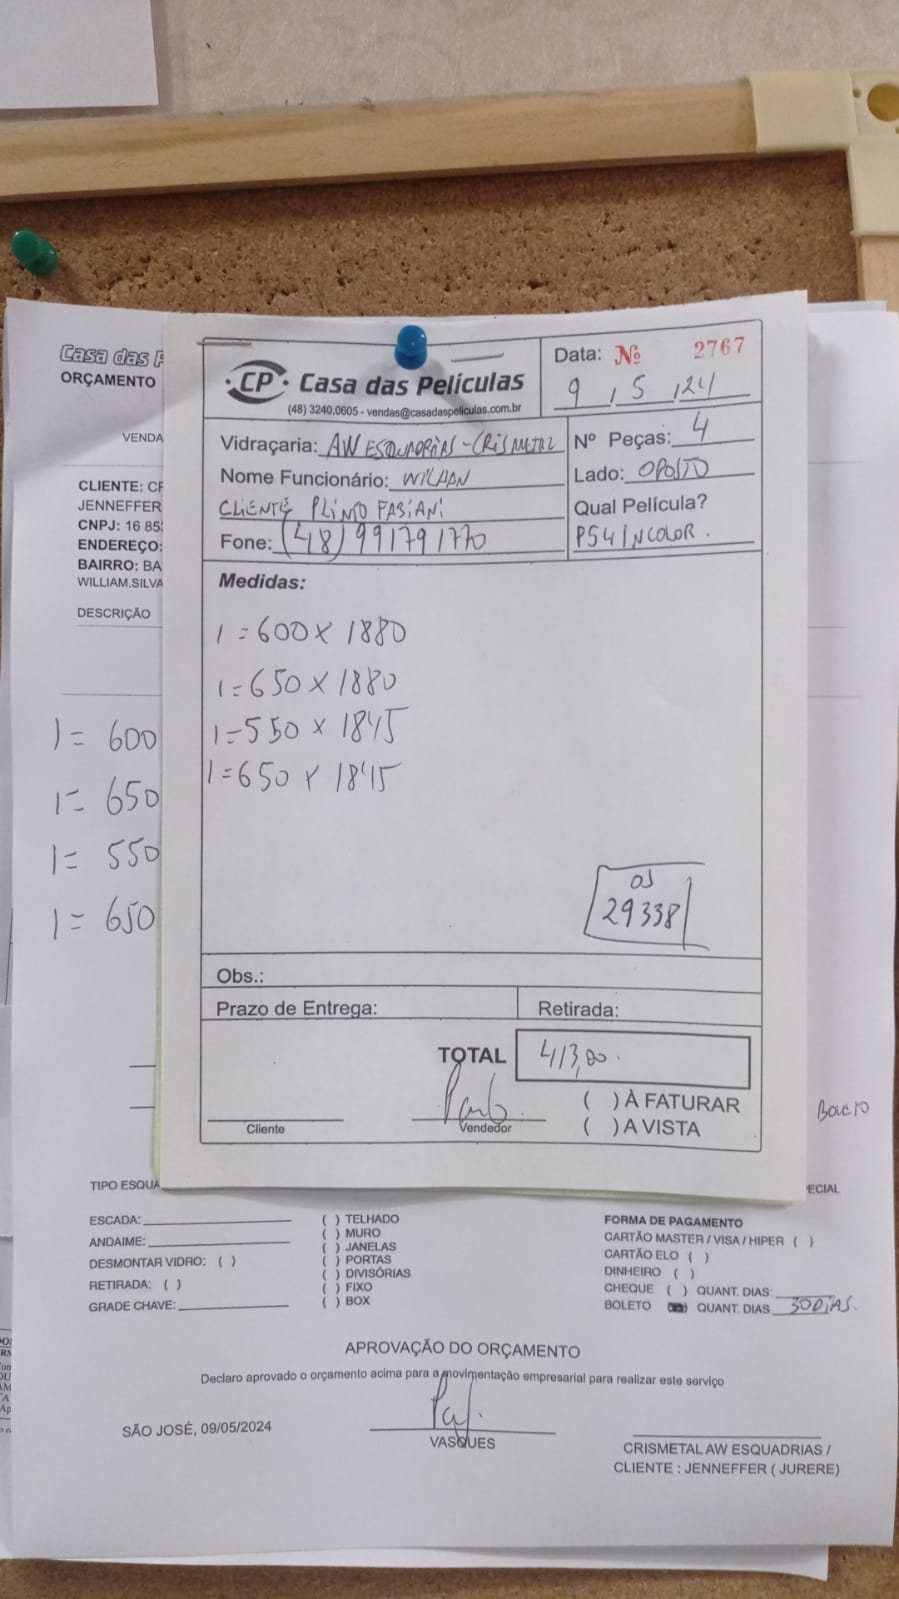 Casa das P
ORÇAMENTO
VENDA
CLIENTE: CF
JENNEFFER
CNPJ: 16 85
ENDEREÇO:
BAIRRO: BA
WILLIAM.SILVA
DESCRIÇÃO
1= 600
1= 650
1= 550
1= 650
CP Casa das Películas
(48) 3240.0605 - vendas@casadaspeliculas.com.br
Data: Nº 2767
9 , 5 , 24
Vidraçaria: AW ESQUADRIAS - CRISMETAL
Nº Peças: 4
Nome Funcionário: WILLIAN
Lado: OPOSTO
CLIENTE PLINIO FABIANI
Qual Película?
Fone: (48) 991791770
PS4 INCOLOR.
Medidas:
1=600 x 1880
1=650 x 1880
1=550 x 1845
1=650 x 1845
OS
29338
Obs.:
Prazo de Entrega: Retirada:
TOTAL 413,00.
( ) À FATURAR
Cliente Vendedor ( ) A VISTA
BOLETO
TIPO ESQUA
PECIAL
ESCADA:
ANDAIME:
DESMONTAR VIDRO: ( )
RETIRADA: ( )
GRADE CHAVE:
( ) TELHADO
( ) MURO
( ) JANELAS
( ) PORTAS
( ) DIVISÓRIAS
( ) FIXO
( ) BOX
FORMA DE PAGAMENTO
CARTÃO MASTER / VISA / HIPER ( )
CARTÃO ELO ( )
DINHEIRO ( )
CHEQUE ( ) QUANT. DIAS:
BOLETO QUANT. DIAS 30 DIAS.
APROVAÇÃO DO ORÇAMENTO
Declaro aprovado o orçamento acima para a movimentação empresarial para realizar este serviço
SÃO JOSÉ, 09/05/2024
VASQUES
CRISMETAL AW ESQUADRIAS /
CLIENTE : JENNEFFER ( JURERE)